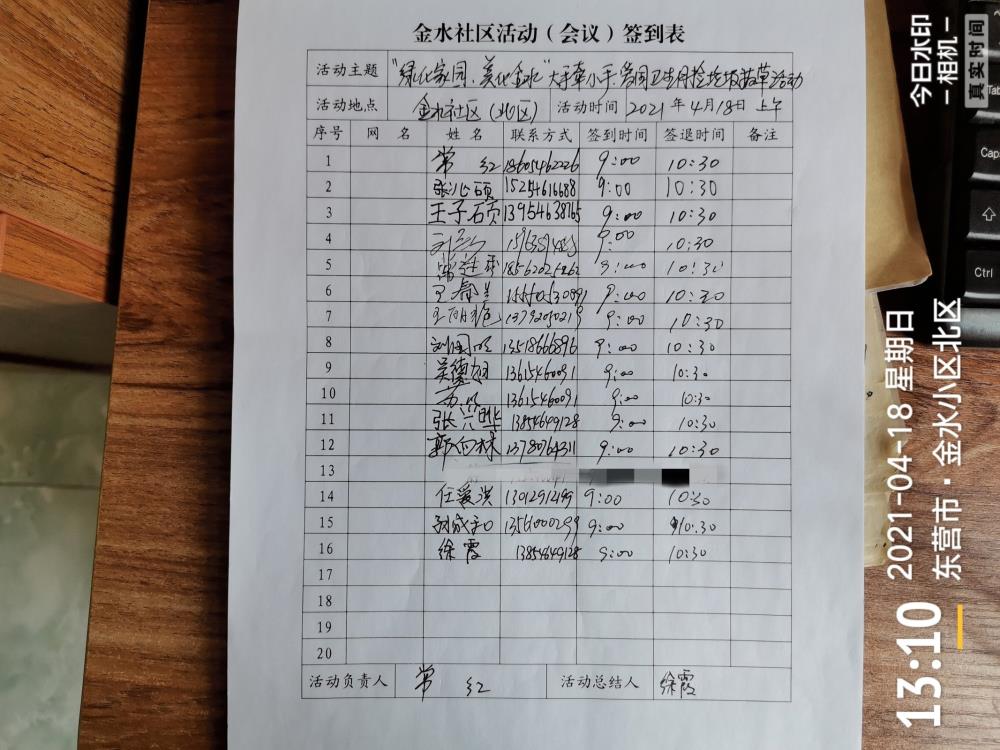 金水社区活动（会议）签到表
活动主题 "绿化家园、美化金水"大手牵小手爱国卫生月捡垃圾拔草活动
活动地点 金水社区(北区) 活动时间 2021年4月18日 上午
序号 网名 姓名 联系方式 签到时间 签退时间 备注
1 常红 18605462226 9:00 10:30
2 15254616688 9:00 10:30
3 王子硕 13954638765 9:00 10:30
4 9:00 10:30
5 9:00 10:30
6 9:00 10:30
7 9:00 10:30
8 刘国收 13518666896 9:00 10:30
9 13615460091 9:00 10:30
10 13615460091 9:00 10:30
11 张兴晔 13854649128 9:00 10:30
12 郭向林 13780764311 9:00 10:30
13
14 任爱洪 9:00 10:30
15 9:00 10:30
16 徐霞 13854649128 9:00 10:30
17
18
19
20
活动负责人 常红 活动总结人 徐霞
今日水印
-相机-
真实时间
13:10
2021-04-18 星期日
东营市·金水小区北区
Tab
Cap
Ctrl